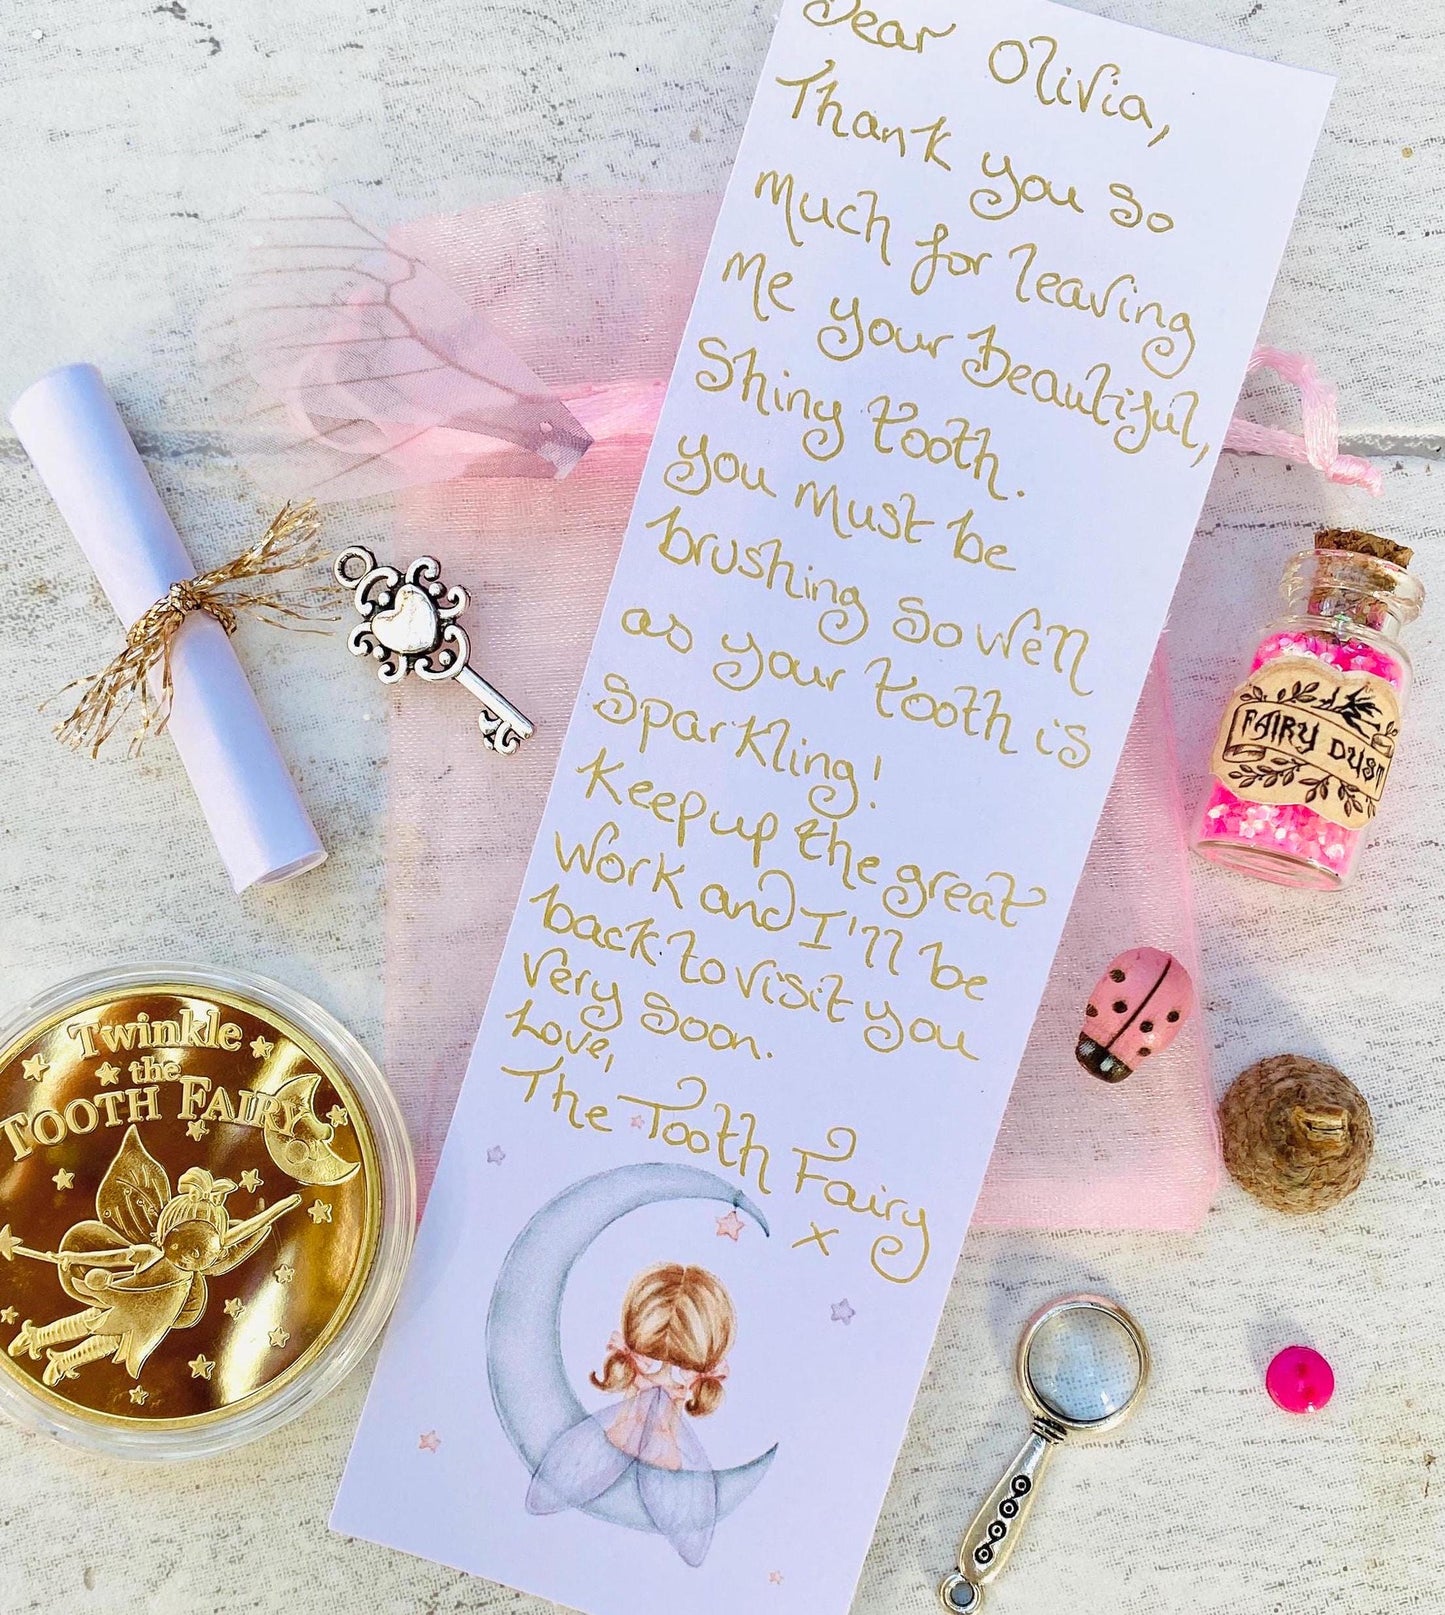 Dear Olivia,
Thank you so
much for leaving
me your beautiful,
shiny tooth.
you must be
brushing so well
as your tooth is
sparkling!
Keep up the great
work and I'll be
back to visit you
very soon.
Love,
The Tooth Fairy
x
Twinkle
the
TOOTH FAIRY
FAIRY DUST